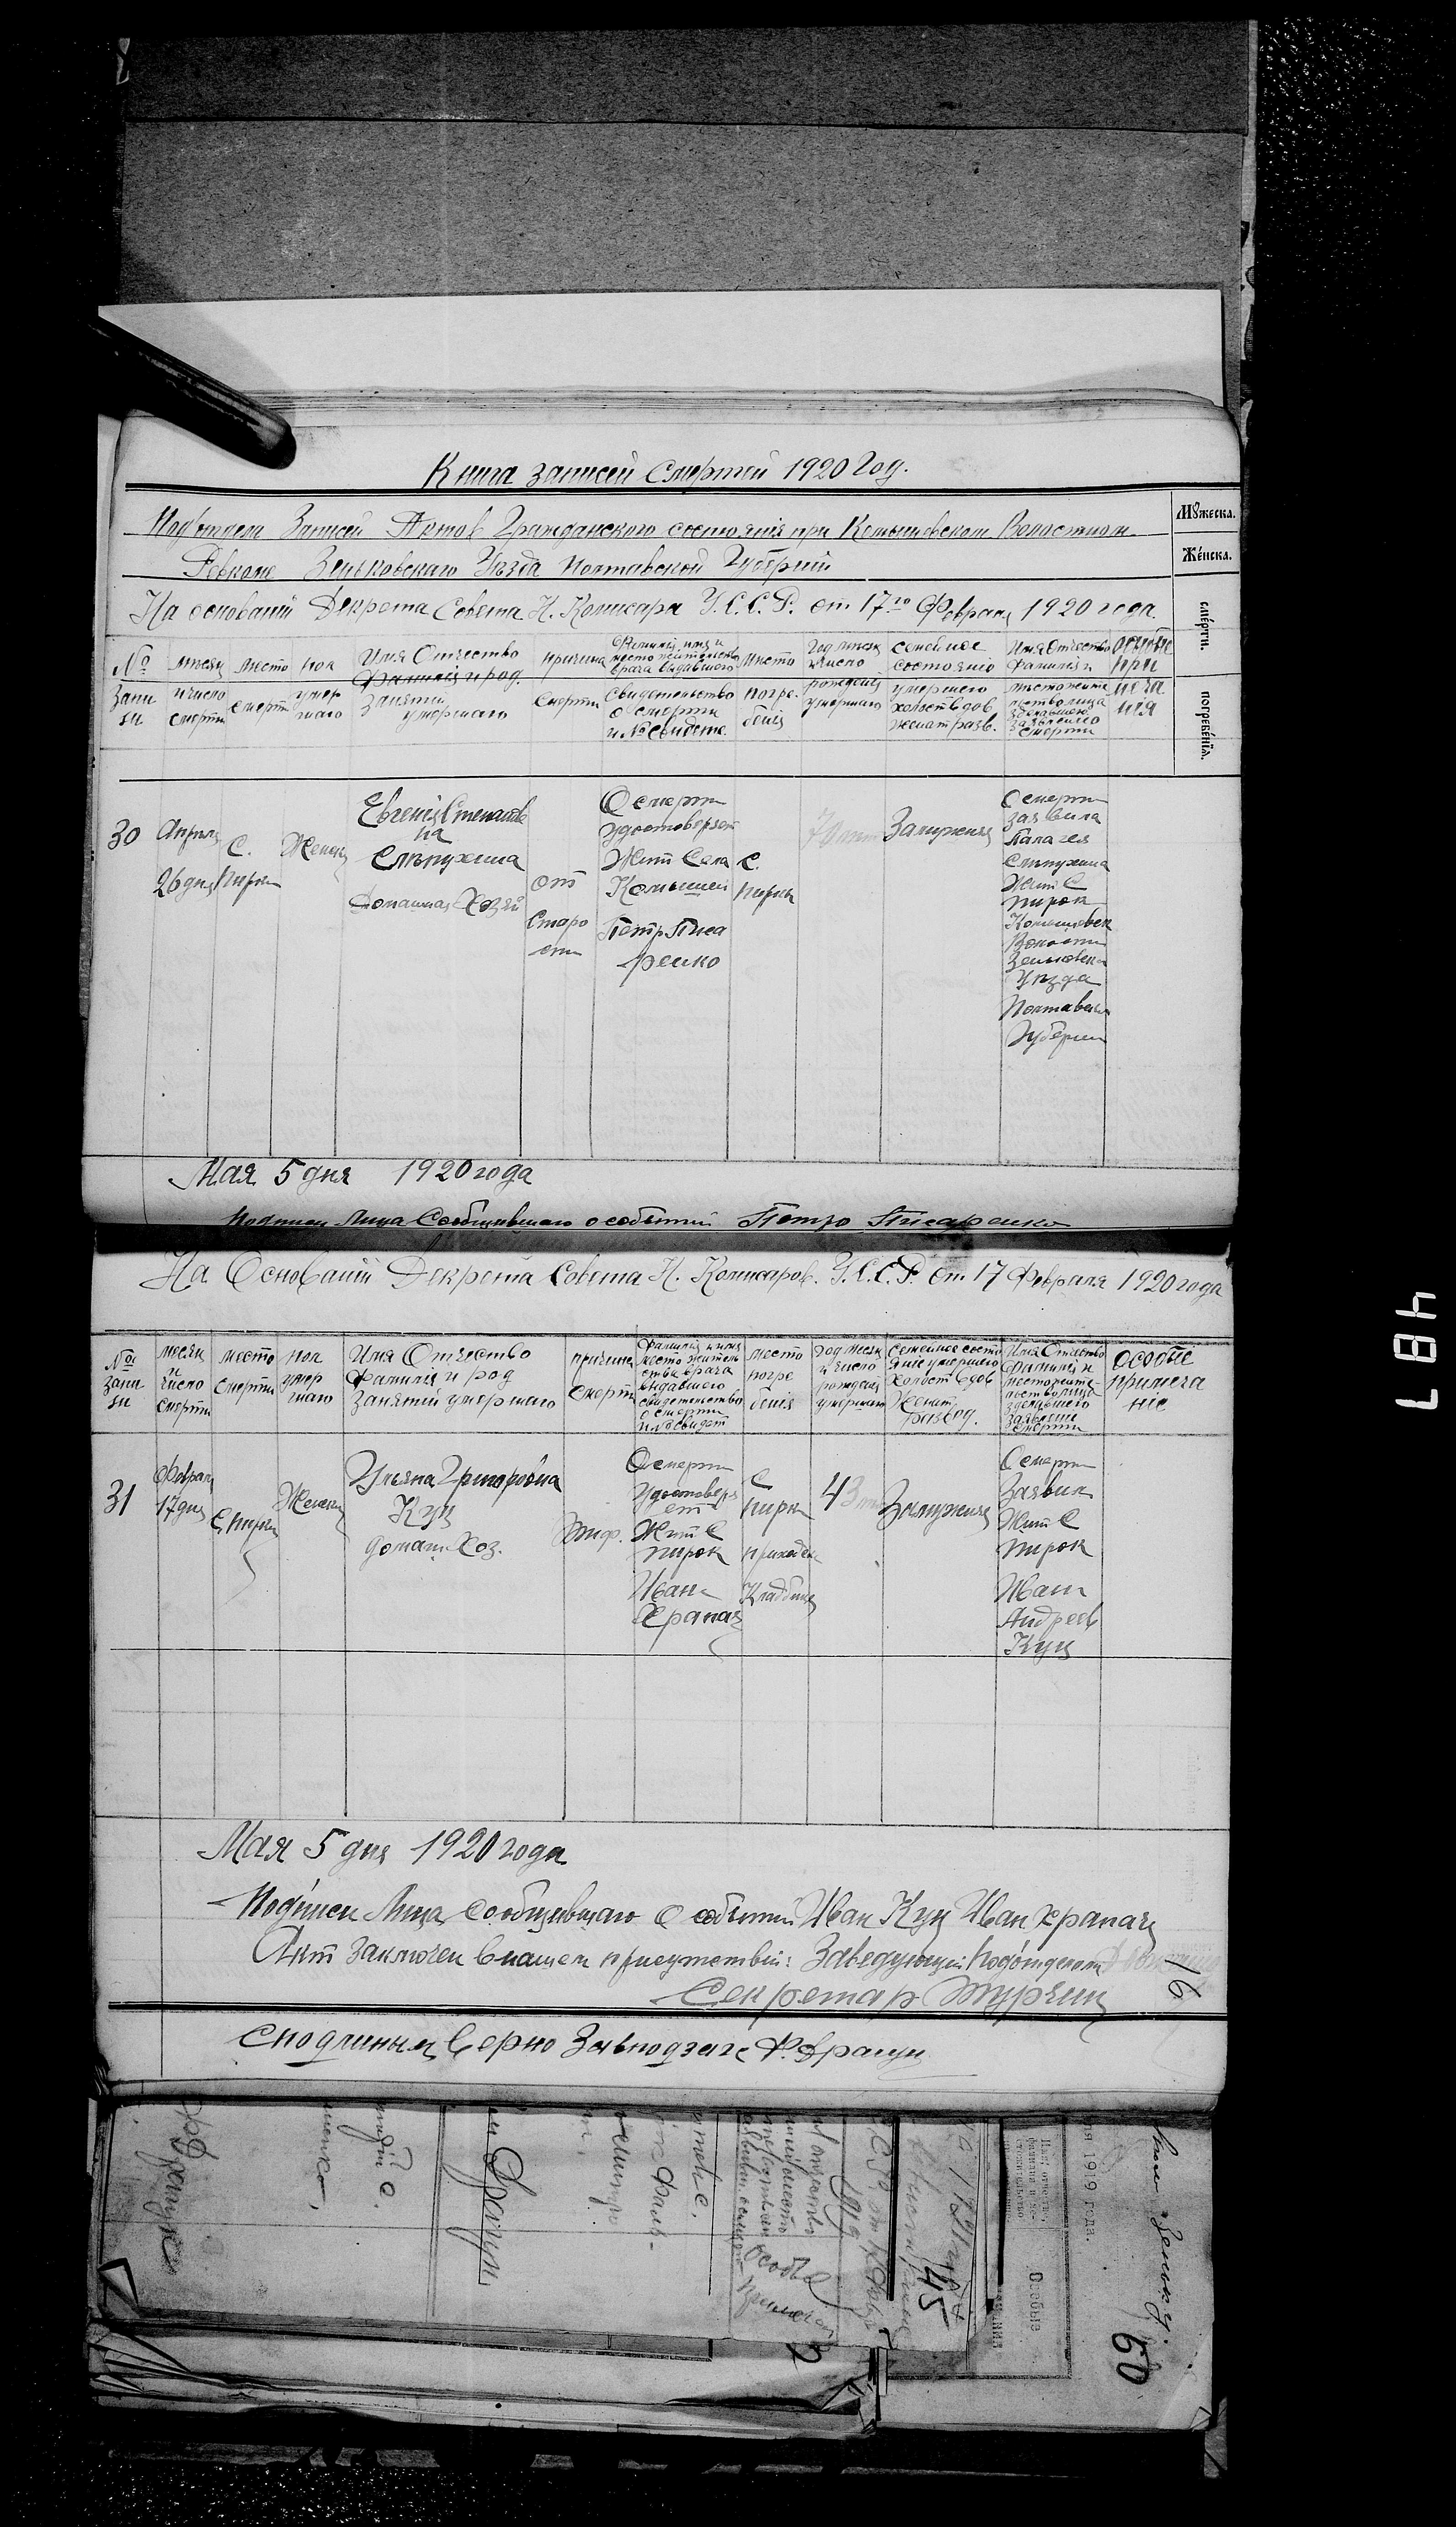 Книга записей Смертей 1920 Год.
Мꙋжеска.
Подотдела Записей Актов Гражданского состоянія при Комышовском Волостном
Же́нска.
Ревкоме Зеньковскаго Уѣзда Полтавской Губерніи
На основаніи Декрета Совета Н. Комисара У.С.С.Р. от 17го Февраля 1920 года.
сме́рти.
погребе́нїѧ.
№ Записи
месяц и число смерти
место смерти
пол умершаго
Имя Отчество Фамилія и род занятій умершаго
причина смерти
Фамилія имя и место жительства врача выдавшего Свидетельство о смерти и № Свидете.
место погребенія
Год месяц и число рожденія умершаго
семейное состояніе умершего холост вдов женат разв.
Имя Отчество Фамилія и местожительство лица зделавшего заявление о смерти
особые примечанія
30
Апреля
26 дня
С.
Пирки
Женск
Евгенія Степанов
на
Слепухина
Домашная Хозяй
от
Старо
сти
О смерти
удостоверяет
Жит Села
Комышей
Петр Писа
ренко
С.
Пирки
70 лет
Замужняя
О смерти
заявила
Палагея
Слепухина
Жит С
Пирок
Комышовск
Волости
Зеньковска
Уезда
Полтавской
Губерни
Мая 5 дня 1920 года
Подписи Лица Сообщившаго о событіи Петро Писаренко
На Основаніи Декрета Совета Н. Комисаров. У.С.С.Р. От 17 Февраля 1920 года
№ записи
месяц и число смерти
место смерти
пол умершаго
Имя Отчество Фамилія и род Занятій умершаго
причина смерти
Фамилія и имя место жительства врача выдавшего свидетельство о смерти и № свидет
место погребенія
Год месяц и число рожденія умершаго
Семейное состояніе умершего Холост вдов Женат развед.
Имя Отчество Фамилія и местожительство лица зделавшего заявление о смерти
особые примечаніе
31
Февраля
17 дня
С. Пирки
Женск
Ульяна Григоровна
Куц
домаш. Хоз.
Тиф.
О смерти
Удостоверя
ет
Жит С
Пирок
Иван
Храпач
С
Пирки
приходск
Кладбище
43 лет
Замужняя
О смерти
Заявил
Жит С
Пирок
Иван
Андреев
Куц
Мая 5 дня 1920 года
Подписи Лица сообщившаго о событіи Иван Куц Иван Храпач
Акт заключен в нашем присутствіи: Заведующій Подотделом
16
Секретар Турчин
С подлиным верно Завподзагс Ф. Драгун
487
Драгун
145
1919 года.
Особые
60